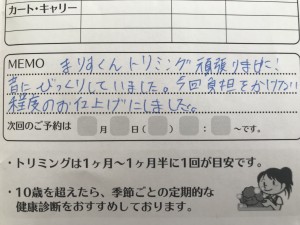 カート・キャリー
MEMO まりすくんトリミング頑張りました!
音にびっくりしていました。今回負担をかけない
程度のお仕上げにしました。
次回のご予約は 月 日( )~です。
・トリミングは1ヶ月~1ヶ月半に1回が目安です。
・10歳を超えたら、季節ごとの定期的な
健康診断をおすすめしております。